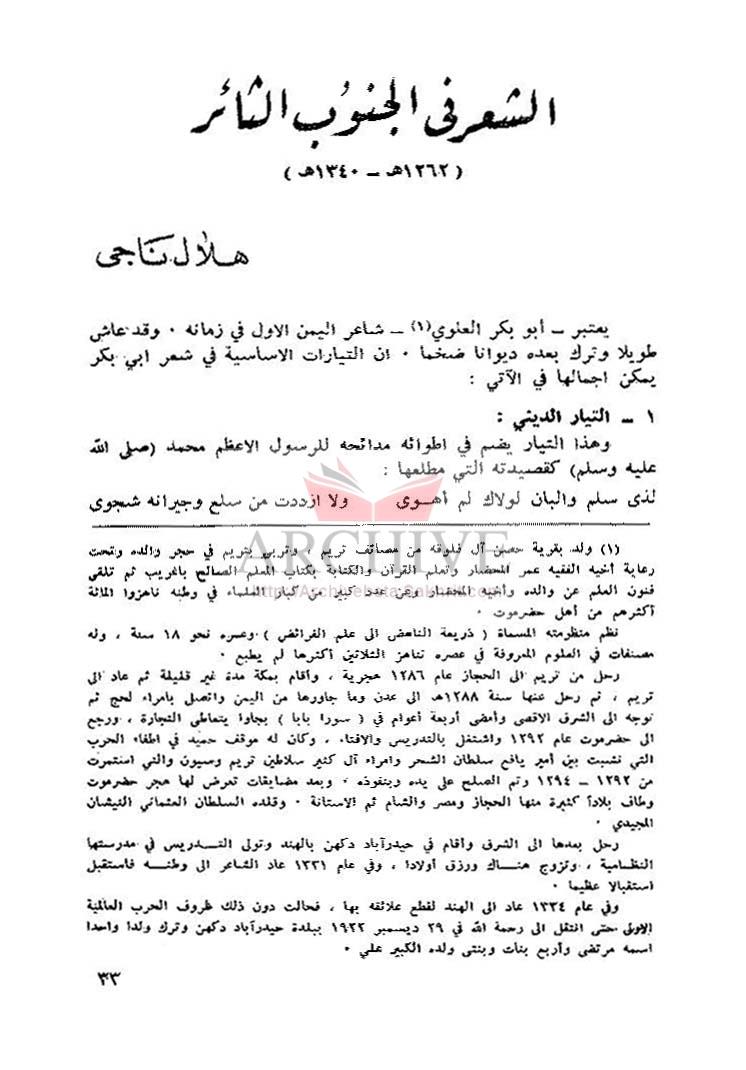 الشعر في الجنوب الثائر
(١٢٦٢هـ – ١٣٤٠هـ)
هلال ناجي
يعتبر – أبو بكر العلوي(١) – شاعر اليمن الاول في زمانه ٠ وقد عاش
طويلا وترك بعده ديوانا ضخما ٠ ان التيارات الاساسية في شعر ابي بكر
يمكن اجمالها في الآتي :
١ – التيار الديني :
وهذا التيار يضم في اطوائه مدائحه للرسول الاعظم محمد (صلى الله
عليه وسلم) كقصيدته التي مطلعها :
لذى سلم والبان لولاك لم أهوى ولا ازددت من سلع وجيرانه شجوى
ARCHIVE
(١) ولد بقرية حصن آل فلوقه من مصائف تريم ، وتربى بتريم في حجر والده وتحت
رعاية أخيه الفقيه عمر المحضار وتعلم القرآن والكتابة بكتاب المعلم الصالح باغريب ثم تلقى
فنون العلم عن والده وأخيه المحضار وعن عدد كبير من كبار العلماء في وطنه ناهزوا المائة
أكثرهم من أهل حضرموت ٠
نظم منظومته المسماة ( ذريعة الناهض الى علم الفرائض ) وعمره نحو ١٨ سنة ، وله
مصنفات في العلوم المعروفة في عصره تناهز الثلاثين أكثرها لم يطبع ٠
رحل من تريم الى الحجاز عام ١٢٨٦ هجرية ، وأقام بمكة مدة غير قليلة ثم عاد الى
تريم ، ثم رحل عنها سنة ١٢٨٨هـ الى عدن وما جاورها من اليمن واتصل بامراء لحج ثم
توجه الى الشرق الاقصى وأمضى أربعة أعوام في ( سورا بايا ) بجاوا يتعاطى التجارة ، ورجع
الى حضرموت عام ١٢٩٢ واشتغل بالتدريس والافتاء ، وكان له موقف حميد في اطفاء الحرب
التي نشبت بين أمير يافع سلطان الشحر وامراء آل كثير سلاطين تريم وسيون والتي استمرت
من ١٢٩٢ – ١٢٩٤ وتم الصلح على يده وبنفوذه ٠ وبعد مضايقات تعرض لها هجر حضرموت
وطاف بلاداً كثيرة منها الحجاز ومصر والشام ثم الاستانة ٠ وقلده السلطان العثماني النيشان
المجيدي ٠
رحل بعدها الى الشرق وأقام في حيدرآباد دكهن بالهند وتولى التدريس في مدرستها
النظامية ، وتزوج هناك ورزق أولادا ، وفي عام ١٣٣١ عاد الشاعر الى وطنه فاستقبل
استقبالا عظيما ٠
وفي عام ١٣٣٤ عاد الى الهند لقطع علائقه بها ، فحالت دون ذلك ظروف الحرب العالمية
الاولى حتى انتقل الى رحمة الله في ٢٩ ديسمبر ١٩٢٢ ببلدة حيدرآباد دكهن وترك ولدا واحدا
اسمه مرتضى وأربع بنات وبنتى ولده الكبير علي ٠
٣٣